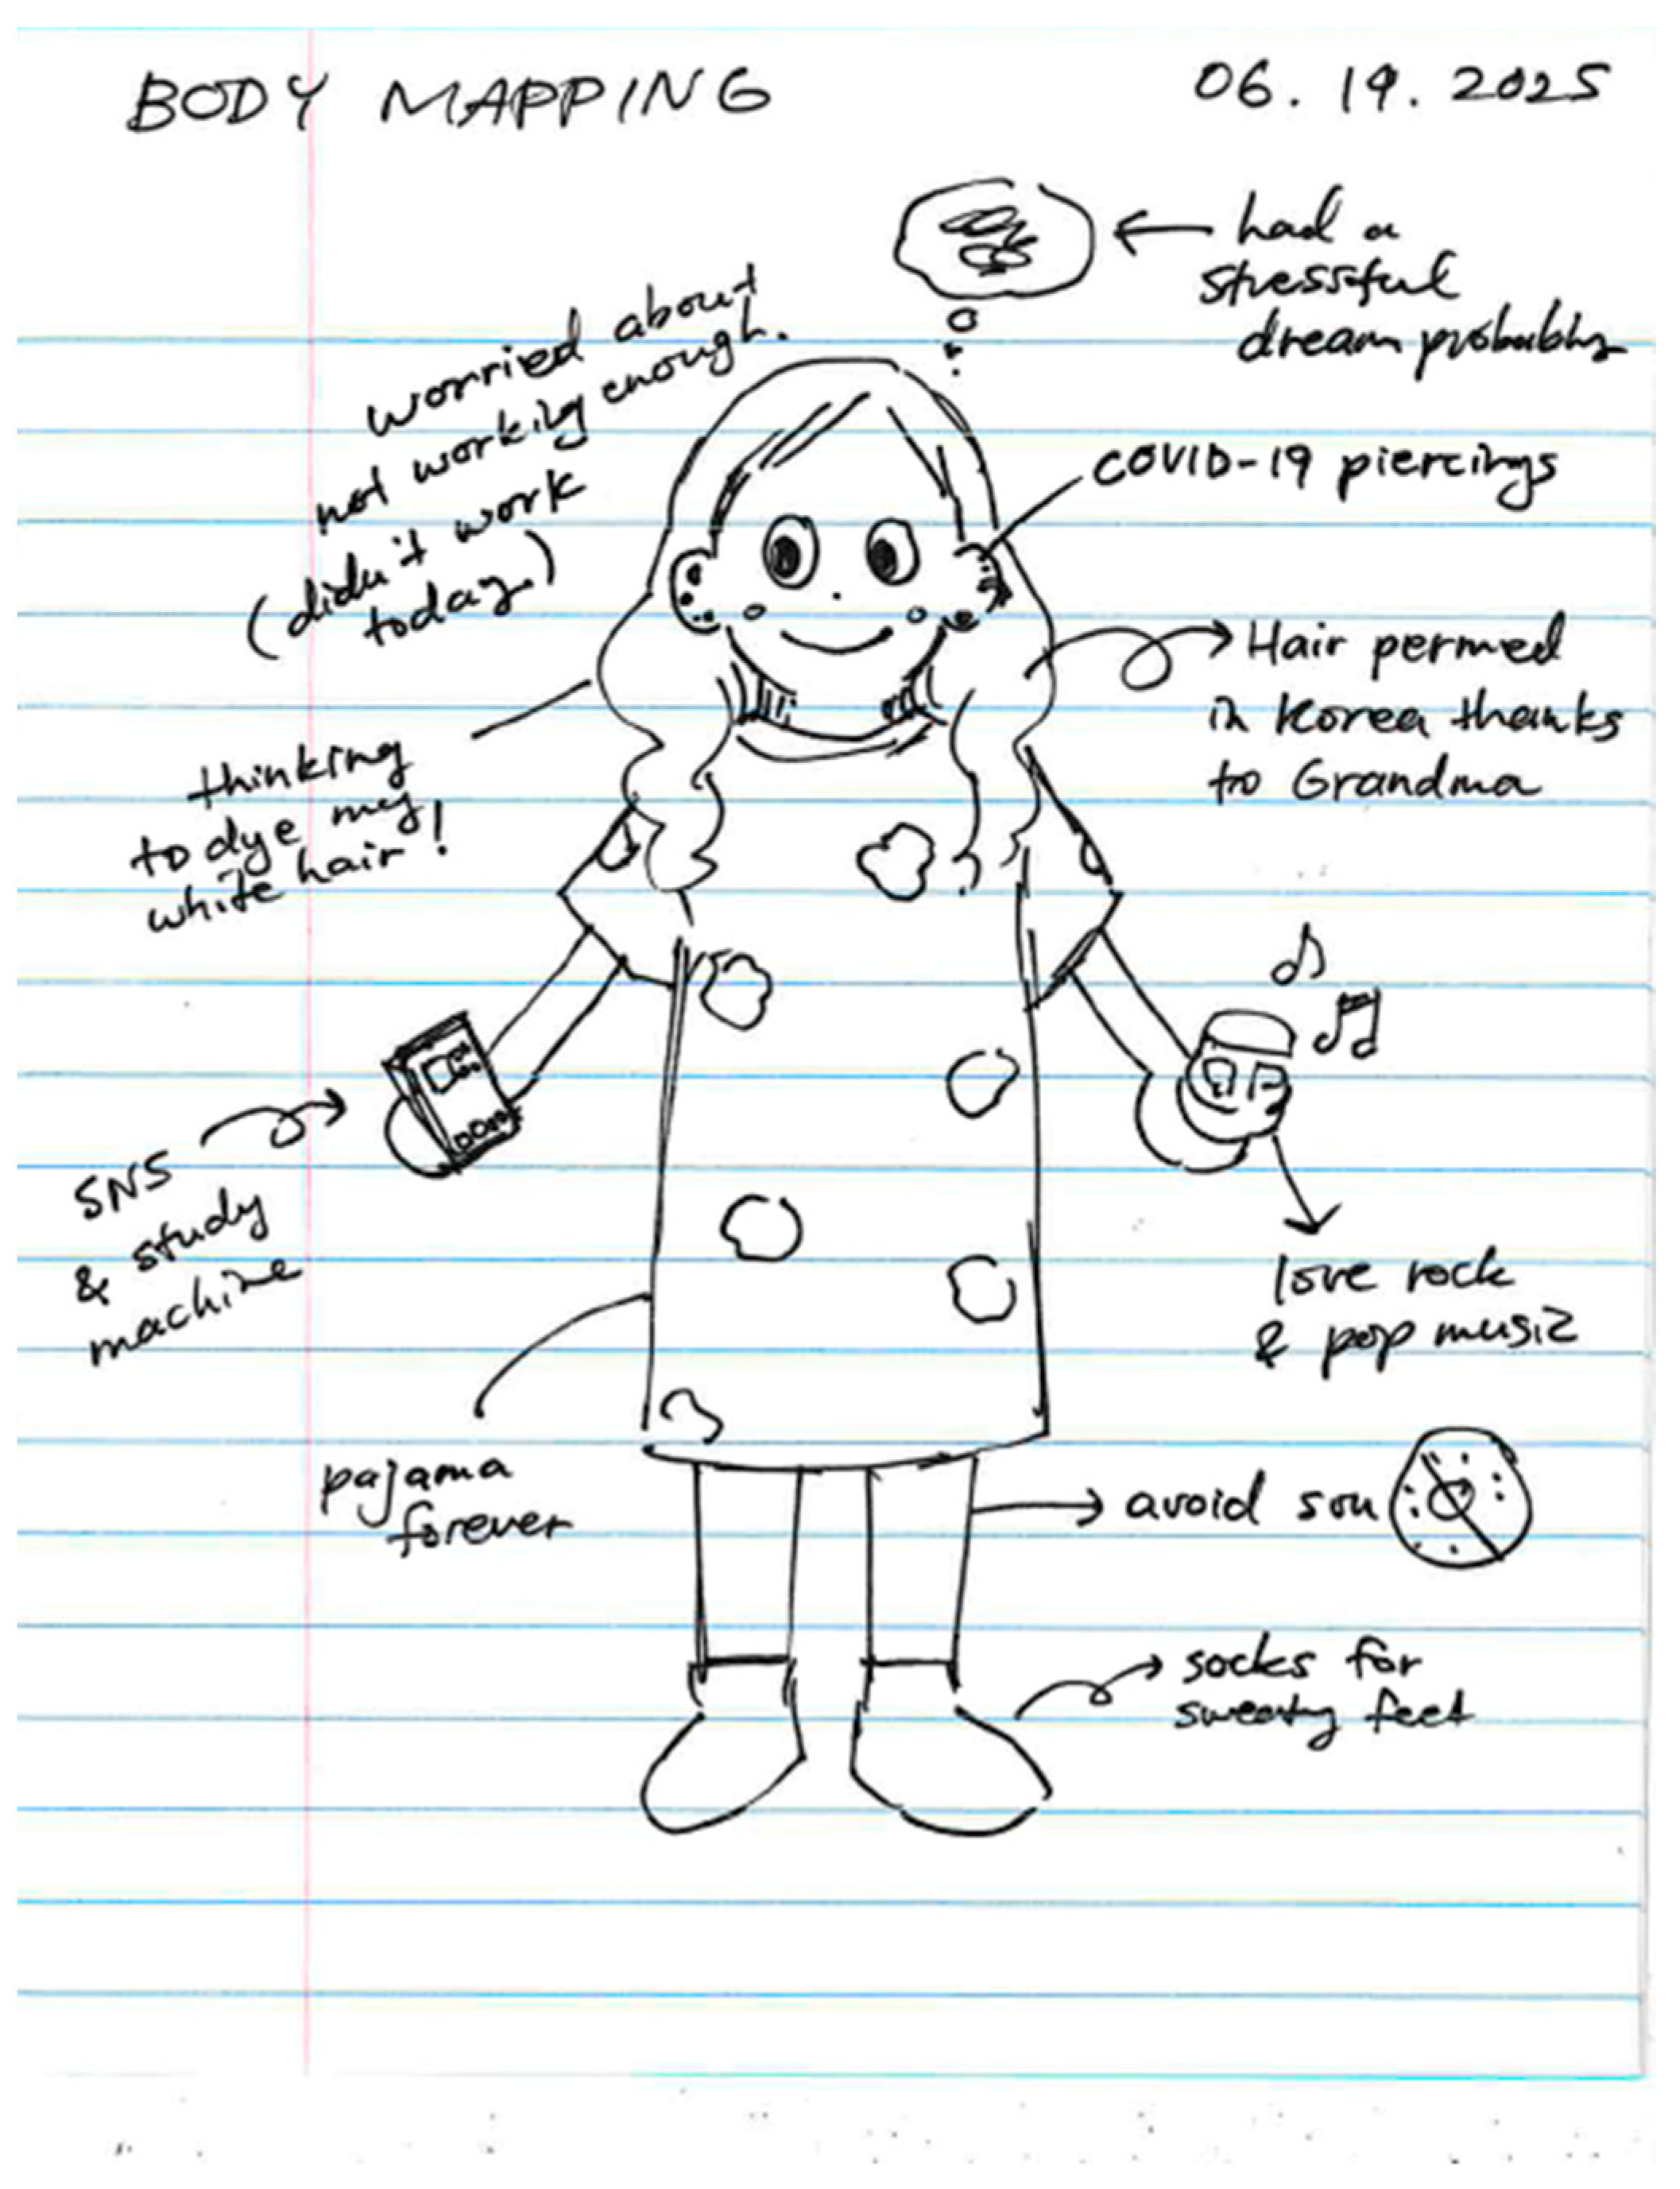 BODY MAPPING
06. 19. 2025
had a
stressful
dream probably
worried about
not working enough.
(didn't work
today.)
COVID-19 piercings
Hair permed
in Korea thanks
to Grandma
thinking
to dye my
white hair!
SNS
& study
machine
love rock
& pop music
pajama
forever
avoid sun
socks for
sweaty feet